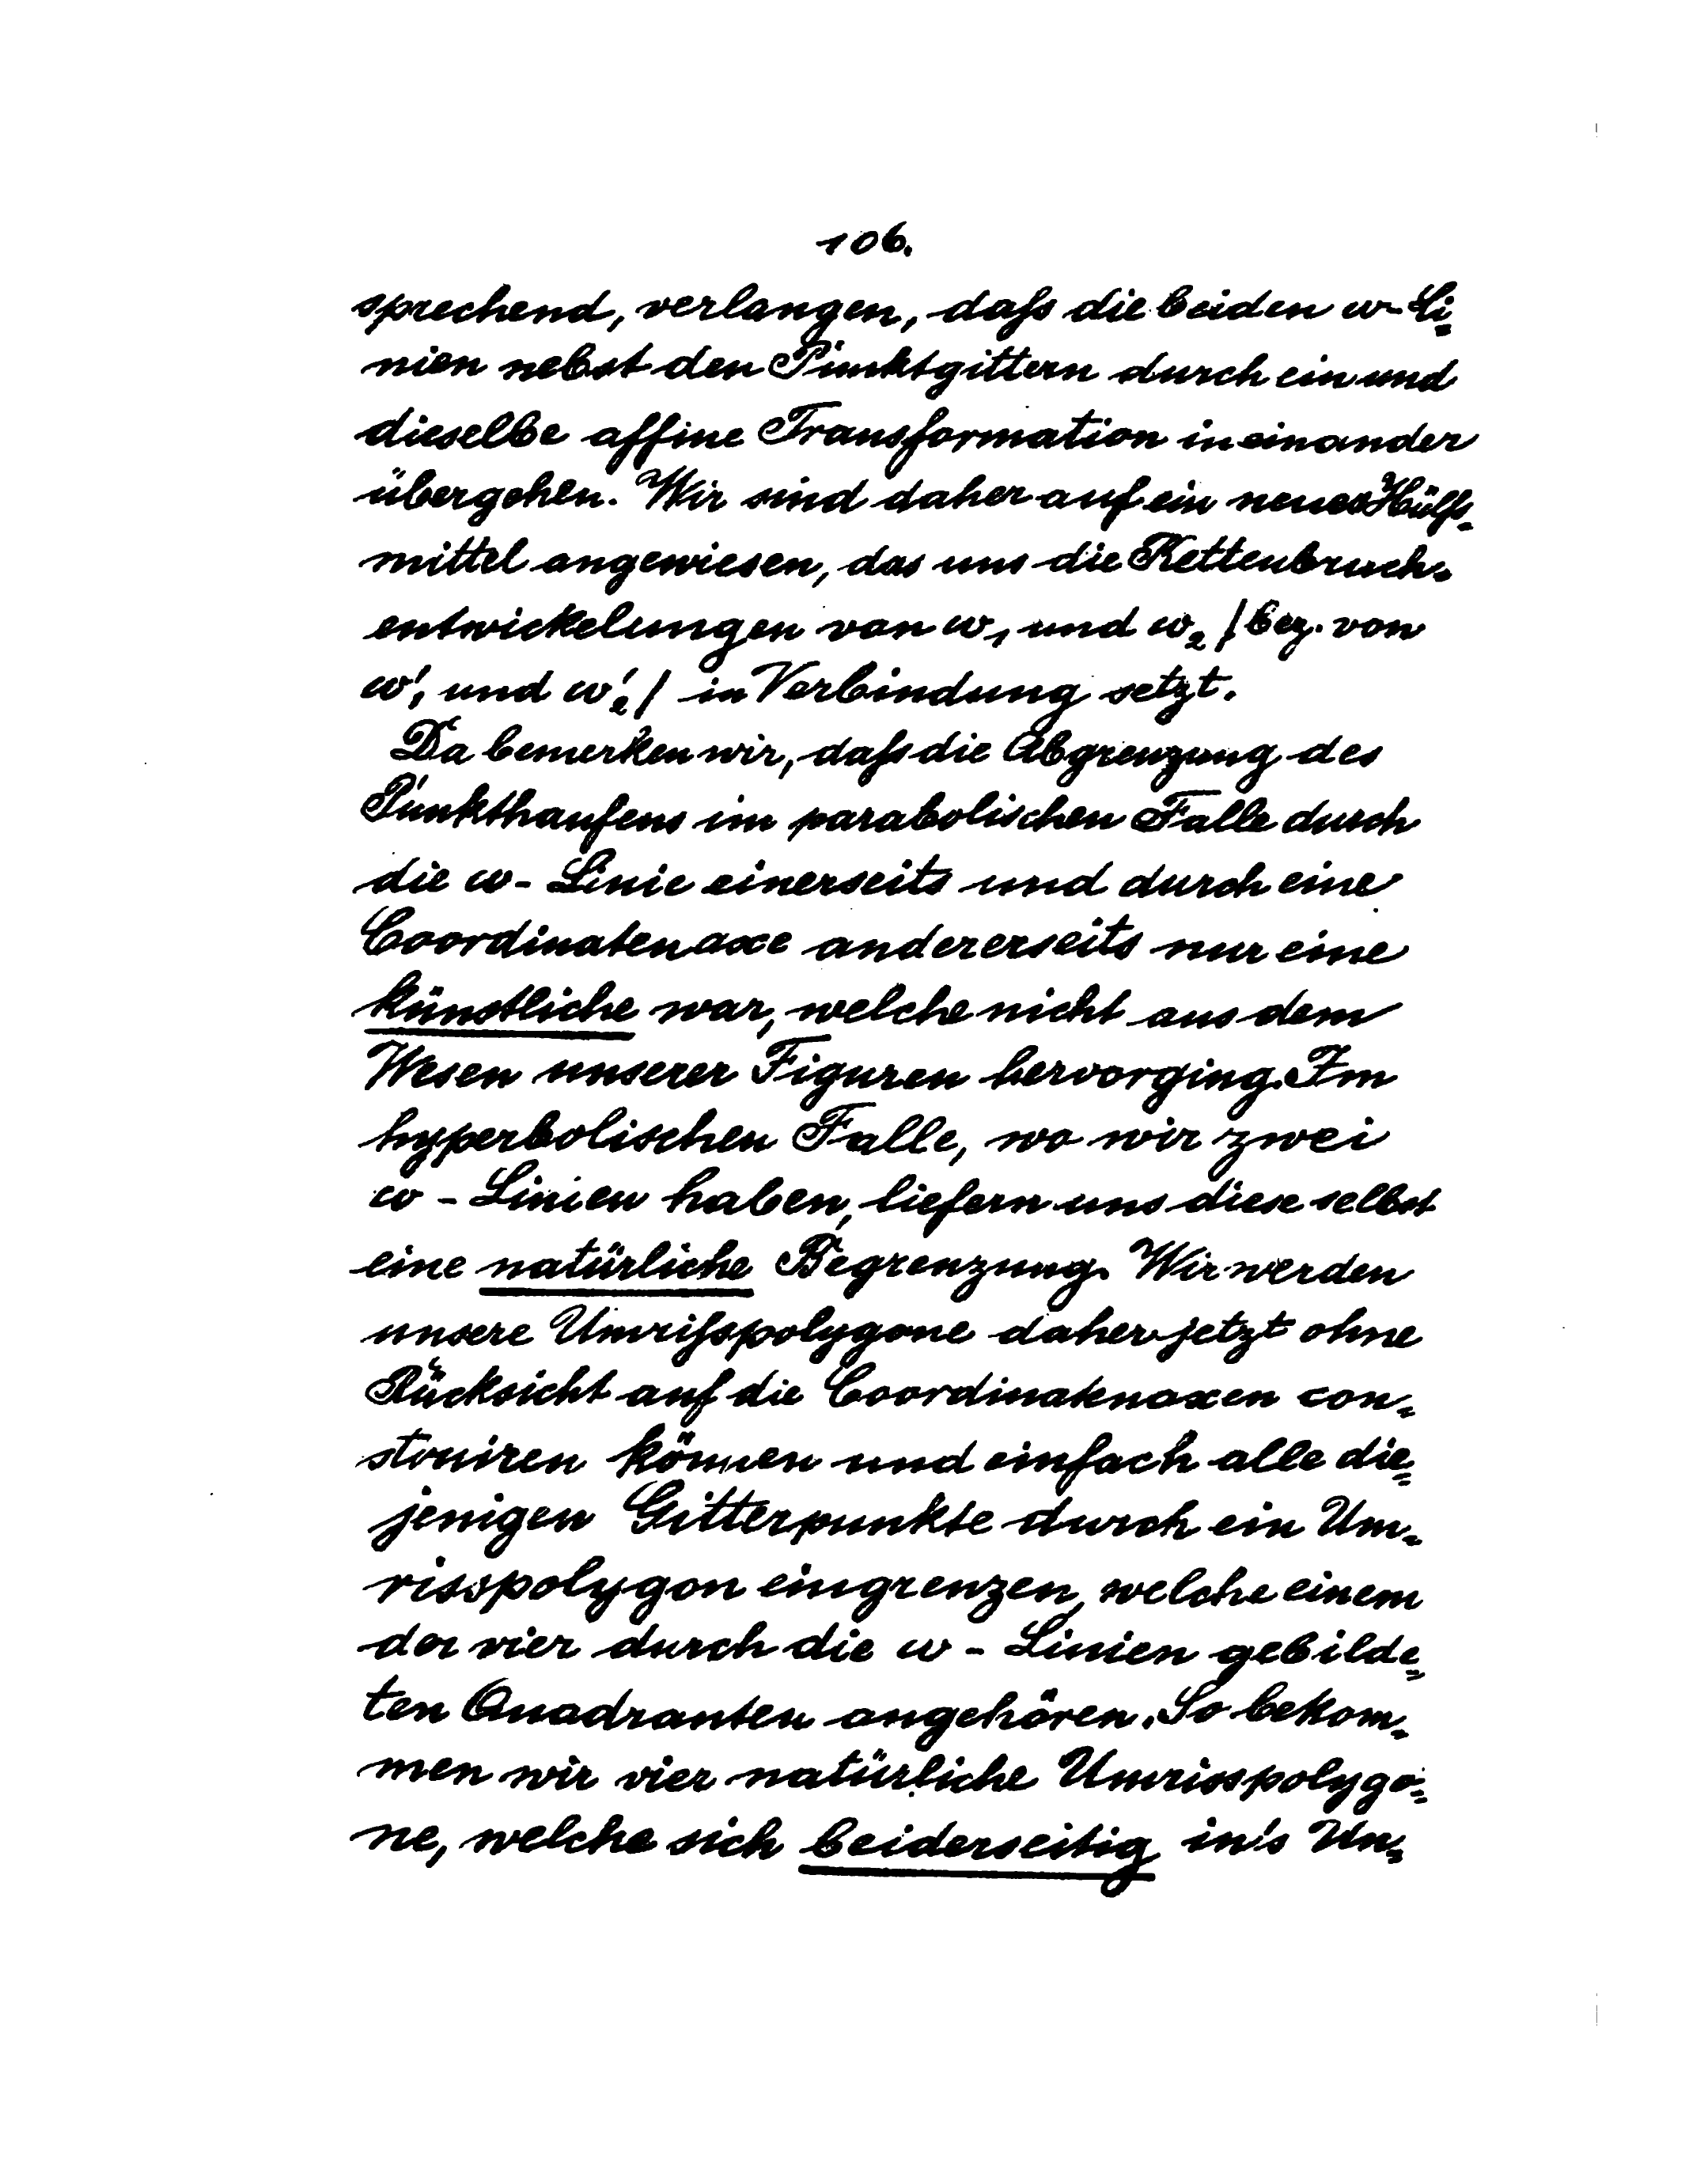 106.
sprechend, verlangen, daſs die beiden ω-Li-
nien nebst den Punktgittern durch ein und
dieselbe affine Transformation in einander
übergehen. Wir sind daher auf ein neues Hülfs-
mittel angewiesen, das uns die Kettenbruch-
entwickelungen von ω₁ und ω₂ /bez. von
ω'₁ und ω'₂/ in Verbindung setzt.
Da bemerken wir, daſs die Abgrenzung des
Punkthaufens im parabolischen Falle durch
die ω-Linie einerseits und durch eine
Coordinatenaxe andererseits nur eine
künstliche war, welche nicht aus dem
Wesen unserer Figuren hervorging. Im
hyperbolischen Falle, wo wir zwei
ω-Linien haben, liefern uns diese selbst
eine natürliche Begrenzung. Wir werden
unsere Umriſspolygone daher jetzt ohne
Rücksicht auf die Coordinatenaxen con-
struiren können und einfach alle die-
jenigen Gitterpunkte durch ein Um-
risspolygon eingrenzen, welche einem
der vier durch die ω-Linien gebilde-
ten Quadranten angehören. So bekom-
men wir vier natürliche Umrisspolygo-
ne, welche sich beiderseitig in's Un-